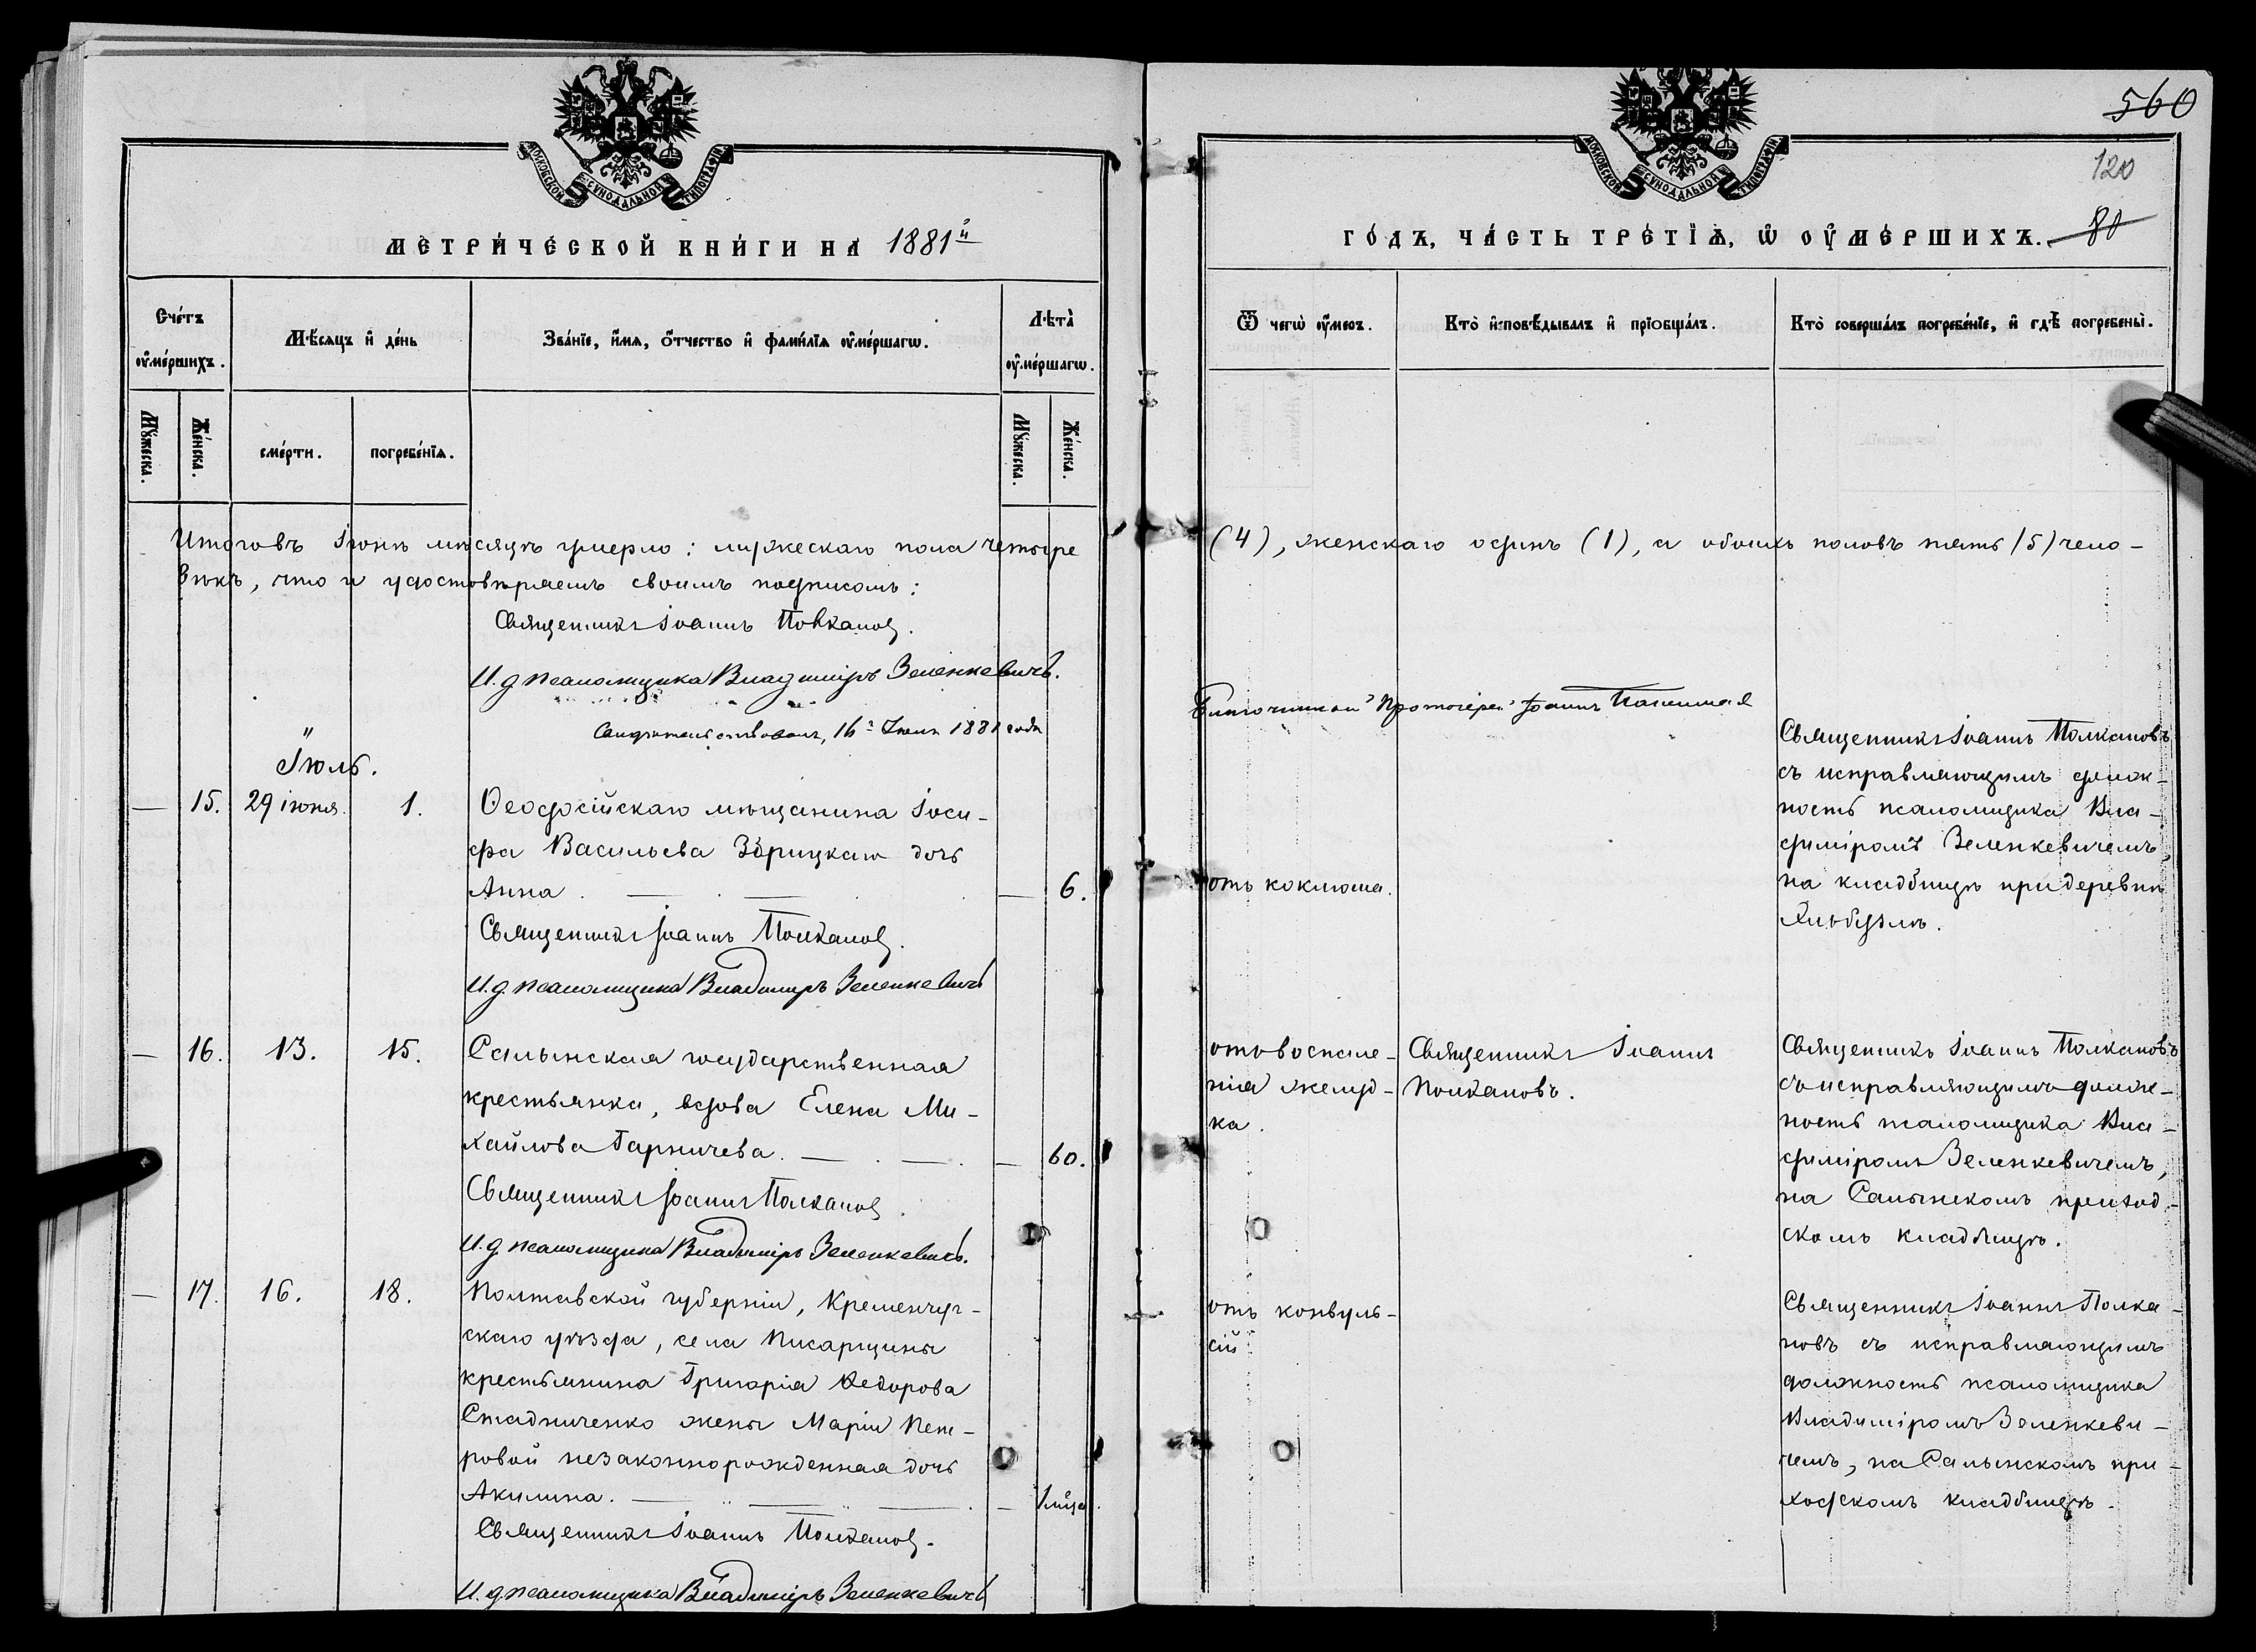 МОСКОВСКОЙ СУНОДАЛЬНОЙ ТИПОГРАФІИ
МЕТРИ́ЧЕСКОЙ КНИ́ГИ НА 1881й
Сче́тъ ᲂу҆ме́ршихъ.
Мѣ́сяцъ и҆ де́нь
Зва́нїе, и҆́мя, ѻ҆́тчество и҆ фами́лїя ᲂу҆ме́ршагѡ.
Лѣта̀ ᲂу҆ме́ршагѡ.
Мꙋ́жеска.
Же́нска.
сме́рти.
погребе́нїѧ.
Мꙋ́жеска.
Же́нска.
Итого въ Іюнѣ мѣсяцѣ умерло: мужескаго пола четыре
вѣкъ, что и удостовѣряемъ своимъ подписомъ:
Священникъ Іоаннъ Полкановъ.
И. д. псаломщика Владиміръ Зеленкевичъ.
Свидѣтельствовалъ, 16го Іюля 1881 года
Іюль.
— 15. 29 іюня. 1. Ѳеодосійскаго мѣщанина Іоси-
фа Васильева Збрицкаго дочь
Анна. — — — 6.
Священникъ Іоаннъ Полкановъ.
И. д. псаломщика Владиміръ Зеленкевичъ
— 16. 13. 15. Салынская государственная
крестьянка, вдова Елена Ми-
хайлова Гарничева. — — — 60.
Священникъ Іоаннъ Полкановъ.
И. д. псаломщика Владиміръ Зеленкевичъ.
— 17. 16. 18. Полтавской губерніи, Кременчуг-
скаго уѣзда, села Писарщины
крестьянина Григорія Ѳедорова
Стадниченко жены Маріи Пет-
ровой незаконнорожденная дочь
Акилина. — — — — 1 мѣца.
Священникъ Іоаннъ Полкановъ.
И. д. псаломщика Владиміръ Зеленкевичъ
560
120
80
МОСКОВСКОЙ СУНОДАЛЬНОЙ ТИПОГРАФІИ
ГО́ДЪ, ЧА́СТЬ ТРЕ́ТЇѦ, Ѡ҆ ОУ҆МЕ́РШИХЪ.
Ѿ чегѡ̀ ᲂу҆́меръ.
Кто̀ и҆сповѣ́дывалъ и҆ прїобща́лъ.
Кто̀ соверша́лъ погребе́нїе, и҆ гдѣ̀ погребены̀.
(4), женскаго одинъ (1), а обоихъ половъ пять (5) чело-
Благочинный Протоіерей Іоаннъ
Священникъ Іоаннъ Полкановъ
съ исправляющимъ долж-
ность псаломщика Вла-
диміромъ Зеленкевичемъ,
отъ коклюша.
на кладбищѣ при деревнѣ
отъ воспале-
нія желуд-
ка.
Священникъ Іоаннъ
Полкановъ.
Священникъ Іоаннъ Полкановъ
съ исправляющимъ долж-
ность псаломщика Вла-
диміромъ Зеленкевичемъ,
на Салынскомъ приход-
скомъ кладбищѣ.
отъ конвуль-
сій
Священникъ Іоаннъ Полка-
новъ съ исправляющимъ
должность псаломщика
Владиміромъ Зеленкеви-
чемъ, на Салынскомъ при-
ходскомъ кладбищѣ.